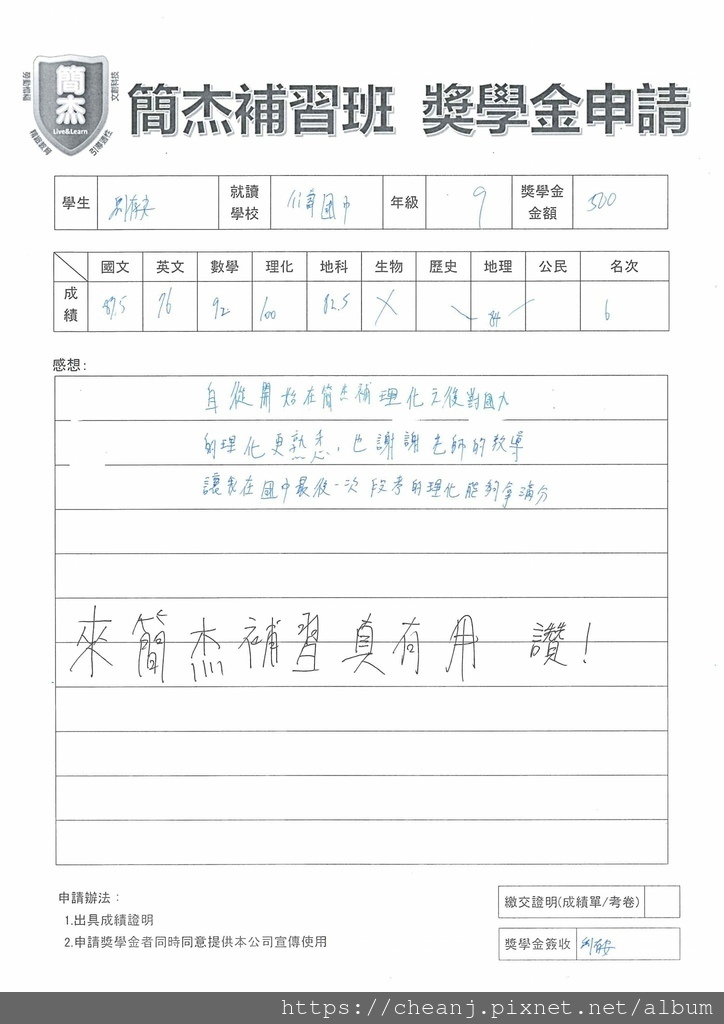 簡杰
Live&Learn
簡杰補習班 獎學金申請
學生 就讀學校 國中 年級 9 獎學金金額 500
國文 英文 數學 理化 地科 生物 歷史 地理 公民 名次
成績 87.5 76 92 100 82.5 X 84 6
感想:
自從開始在簡杰補理化之後對國九
的理化更熟悉,也謝謝老師的教導
讓我在國中最後一次段考的理化能夠拿滿分
來簡杰補習真有用 讚!
申請辦法:
1.出具成績證明
2.申請獎學金者同時同意提供本公司宣傳使用
繳交證明(成績單/考卷)
獎學金簽收
https://cheanj.pixnet.net/album